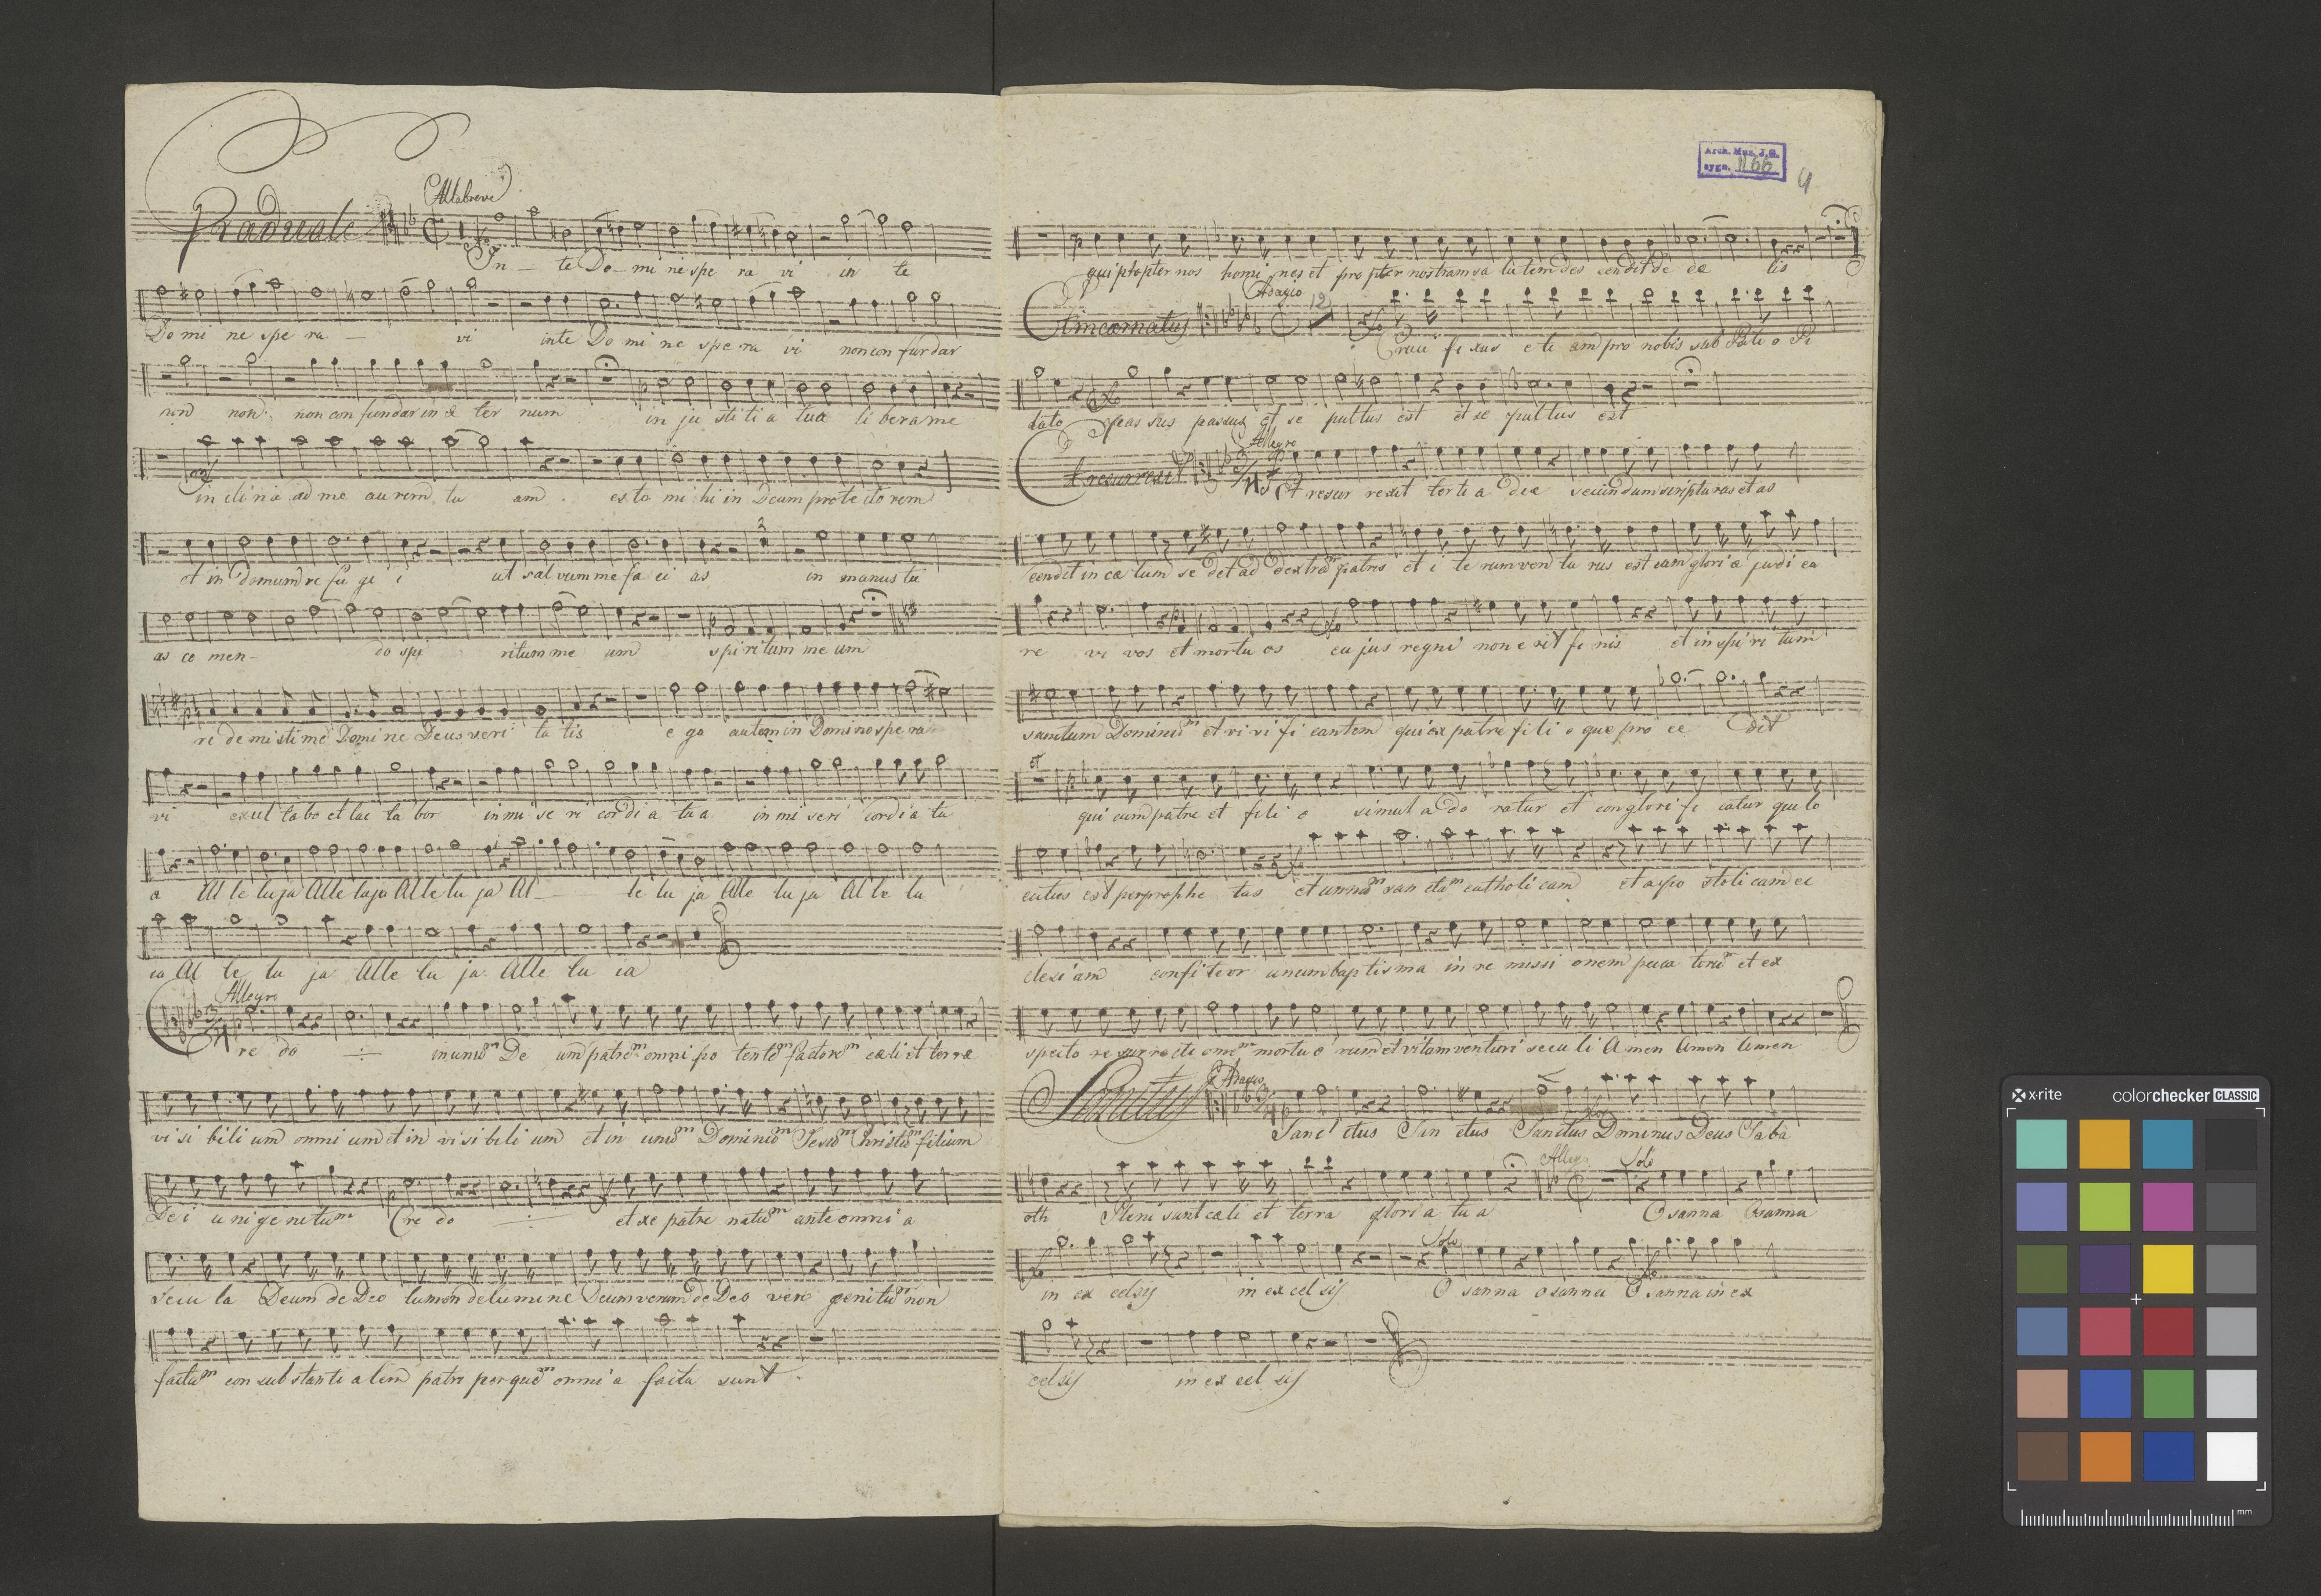 Allabreve
Graduale
In - te Do - mi ne spe ra vi in te
Do mi ne spe ra - vi in te Do mi ne spe ra vi non con fundar
non non non con fundar in æ ter num in ju sti ti a tua li bera me
in cli na ad me aurem tu am . es to mi hi in Deum protectorem
2
et in domum re fu gi i ut salvum me fa ci as in manus tu
as co men - do spi ritum me um spiritum me um
re de misti me Domine Deus veri ta tis e go autem in Domino spe ra
vi exul tabo et lae ta bor in mi se ri cordi a tua in mi seri cordi a tu
a Al le luja Alle luja Al le lu ja Al - le lu ja Alle lu ja Al le lu
ia Al le lu ja Alle lu ja Alle lu ia
Allegro
3/4
Cre do in unu͞m De um patre͞m omni po tente͞m factore͞m cæli et terræ
vi si bili um omni um et in vi si bili um et in unu͞m Dominu͞m Jesu͞m Christu͞m filium
Dei unigenitum Cre do et ex patre natu͞m ante omni a
secu la Deum de Deo lumen de lumine Deum verum de Deo vero genitu͞m non
factu͞m con substanti alem patri per que͞m omni a facta sunt .
Arch. Muz. J.G.
sygn. 1166
4
qui propter nos homi nes et propter nostram sa lutem des cendit de cæ lis
Adagio
Et incarnatus
12
Cruci fi xus eti am pro nobis sub Pontio Pi
lato passus passus et se pultus est et se pultus est
Allegro
Et resurrexit
3/4
Et resur rexit tertia die secundum scripturas et as
cendit in cælum se det ad dextra͞m patris et i te rum ven tu rus est cum gloria judi ca
re vi vos et mortu os cu jus regni non e rit fi nis et in spi ri tum
sanctum Dominu͞m et vi vi fi cantem qui ex patre fi li o que pro ce dit
qui cum patre et fili o simul a do ratur et con glori fi catur qui lo
cutus est per prophe tas et unna͞m san cta͞m catholi cam et a po stoli cam ec
clesi am confiteor unum baptisma in re missi onem pecca toru͞m et ex
specto re surrecti one͞m mortuo rum et vitam venturi seculi Amen Amen Amen
Adagio
Sanctus
Sanc ctus San ctus Sanctus Dominus Deus Saba
Allegro Solo
oth Pleni sunt cæli et terra gloria tu a Osanna Osanna
Solo
in ex celsis in ex cel sis O sanna osanna Osanna in ex
celsis in ex cel sis
x·rite
colorchecker CLASSIC
mm